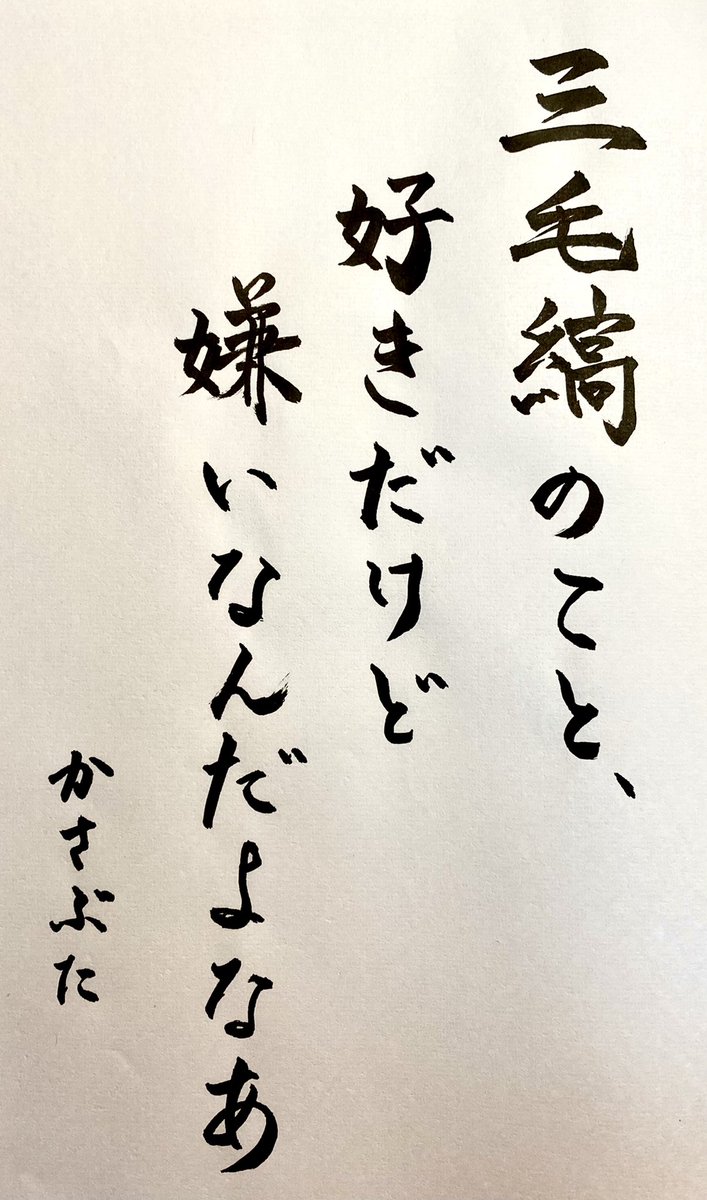 三毛縞のこと、
好きだけど
嫌いなんだよなあ
かさぶた